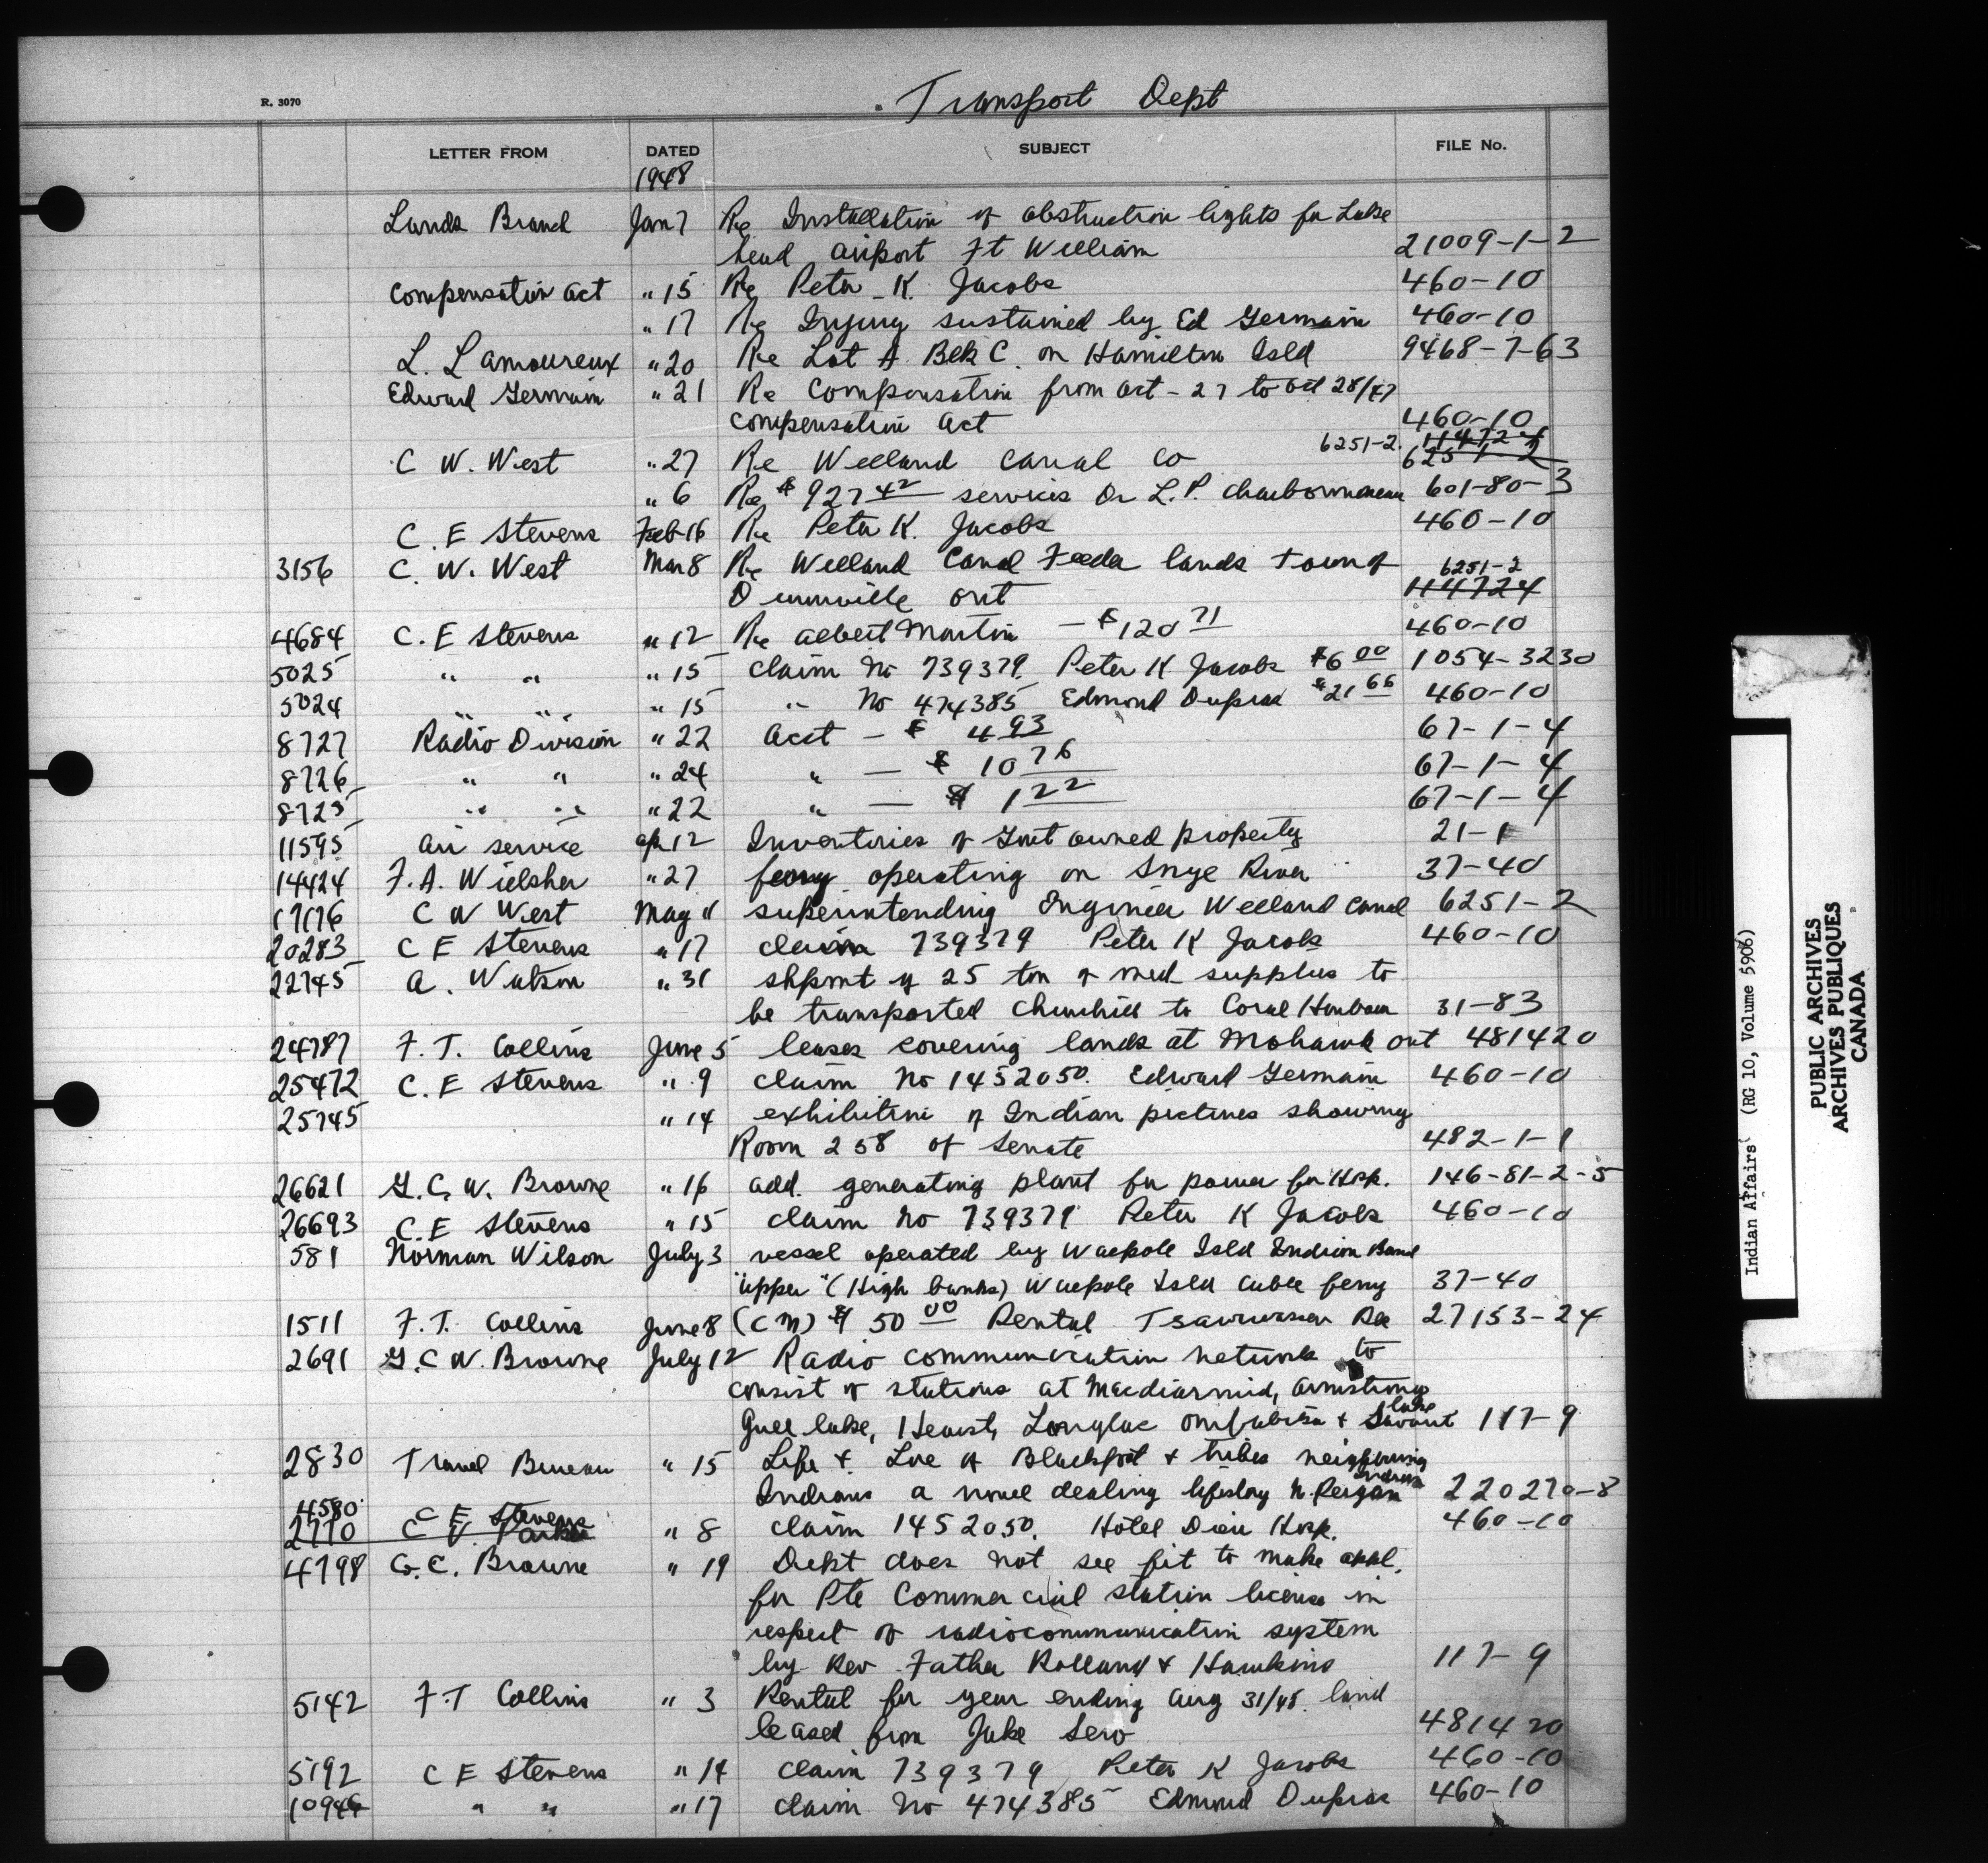 R. 3070
Transport Dept
LETTER FROM DATED SUBJECT FILE No.
1948
Lands Branch Jan 7 Re Installation of obstruction lights for Lake
head airport Ft William 21009-1-2
Compensation Act " 15 Re Peter K. Jacobs 460-10
" 17 Re Injury sustained by Ed Germain 460-10
L. Lamoureux " 20 Re Lot A Blk C. on Hamilton Isld 9468-7-63
Edward Germain " 21 Re Compensation from Oct - 27 to Oct 28/47
Compensation Act 460-10
C W. West " 27 Re Welland Canal Co 6251-2. 114724 6251-2
" 6 Re $927 42 services Dr L. P. Charbonneau 601-80-3
C. E Stevens Feb 16 Re Peter K. Jacobs 460-10
3156 C. W. West Mar 8 Re Welland Canal Feeder lands Town of 6251-2
Dunnville Ont 114724
4684 C. E Stevens " 12 Re Albert Martin - $120 71 460-10
5025 " " " 15 Claim No 739379. Peter K Jacobs $6 00 1054-3230
5024 " " " 15 " No 474385 Edmond Dupras $21 66 460-10
8727 Radio Division " 22 Acct - $ 4 93 67-1-4
8726 " " " 24 " - $ 10 76 67-1-4
8725 " " " 22 " - $ 1 22 67-1-4
11595 Air service Ap 12 Inventories of Govt owned property 21-1
14424 F. A. Willsher " 27 ferry operating on Snye River 37-40
17176 C W West May 11 superintending Engineer Welland Canal 6251-2
20283 C E Stevens " 17 claim 739379 Peter K Jacobs 460-10
22745 A. Watson " 31 shpmt of 25 ton of med supplies to
be transported Churchill to Coral Harbour 31-83
24787 F. T. Collins June 5 leases covering lands at Mohawk Ont 481420
25472 C. E Stevens " 9 claim No 1452050. Edward Germain 460-10
25745 " 14 exhibition of Indian pictures showing
Room 258 of Senate 482-1-1
26621 G. C. W. Browne " 16 add. generating plant for power for Hosp. 146-81-2-5
26693 C. E Stevens " 15 claim No 739379 Peter K Jacobs 460-10
581 Norman Wilson July 3 vessel operated by Walpole Isld Indian Band
"upper" (High banks) Walpole Isld Cable ferry 37-40
1511 F. T. Collins June 8 (CM) $ 50 00 Rental Tsawwassen Res 27153-24
2691 G. C W. Browne July 12 Radio communication network to
consist of stations at Macdiarmid, Armstrong
Gull lake, Hearst, Longlac Ombabika + Savant lake 117-9
2830 Travel Bureau " 15 Life + Lore of Blackfoot + tribes neighbouring
Indians a novel dealing lifestory N. Peigan Indian 220270-8
4580 C E Stevens
2770 C V. Parker " 8 claim 1452050. Hotel Dieu Hosp. 460-10
4798 G. C. Browne " 19 Dept does not see fit to make appl.
for Pte Commercial station license in
respect of radiocommunication system
by Rev Father Rolland + Hawkins 117-9
5142 F. T Collins " 3 Rental for year ending Aug 31/48. land
leased from Jake Sero 481420
5192 C E Stevens " 14 claim 739379 Peter K Jacobs 460-10
10946 " " " 17 claim No 474385 Edmond Dupras 460-10
Indian Affairs (RG 10, Volume 5906)
PUBLIC ARCHIVES
ARCHIVES PUBLIQUES
CANADA